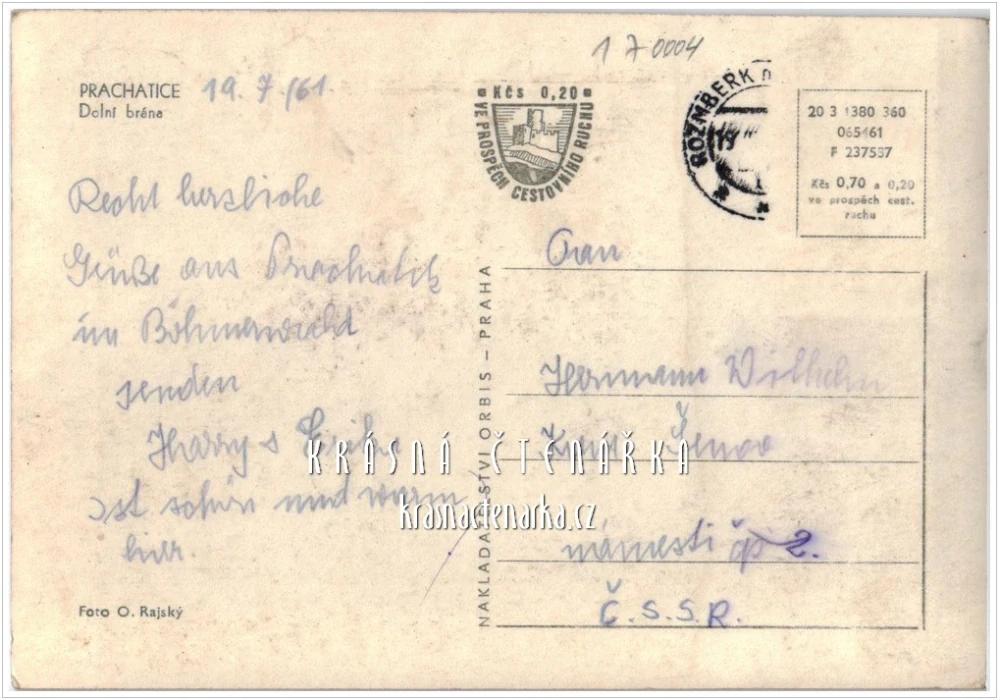 1 7 0004
PRACHATICE 19. 7./61.
Dolní brána
Recht herzliche
Grüße aus Prachatitz
im Böhmerwald
senden
Harry s Erika
ist schön und warm
hier.
Foto O. Rajský
Kčs 0,20
VE PROSPĚCH CESTOVNÍHO RUCHU
ROŽMBERK n
20 3 1380 360
065461
F 237537
Kčs 0,70 a 0,20
ve prospěch cest.
ruchu
NAKLADATELSTVÍ ORBIS – PRAHA
Hermann Wilhelm
Šenov
náměstí čp 2.
Č.S.S.R.
KRÁSNÁ ČTENÁŘKA
krasnactenarka.cz